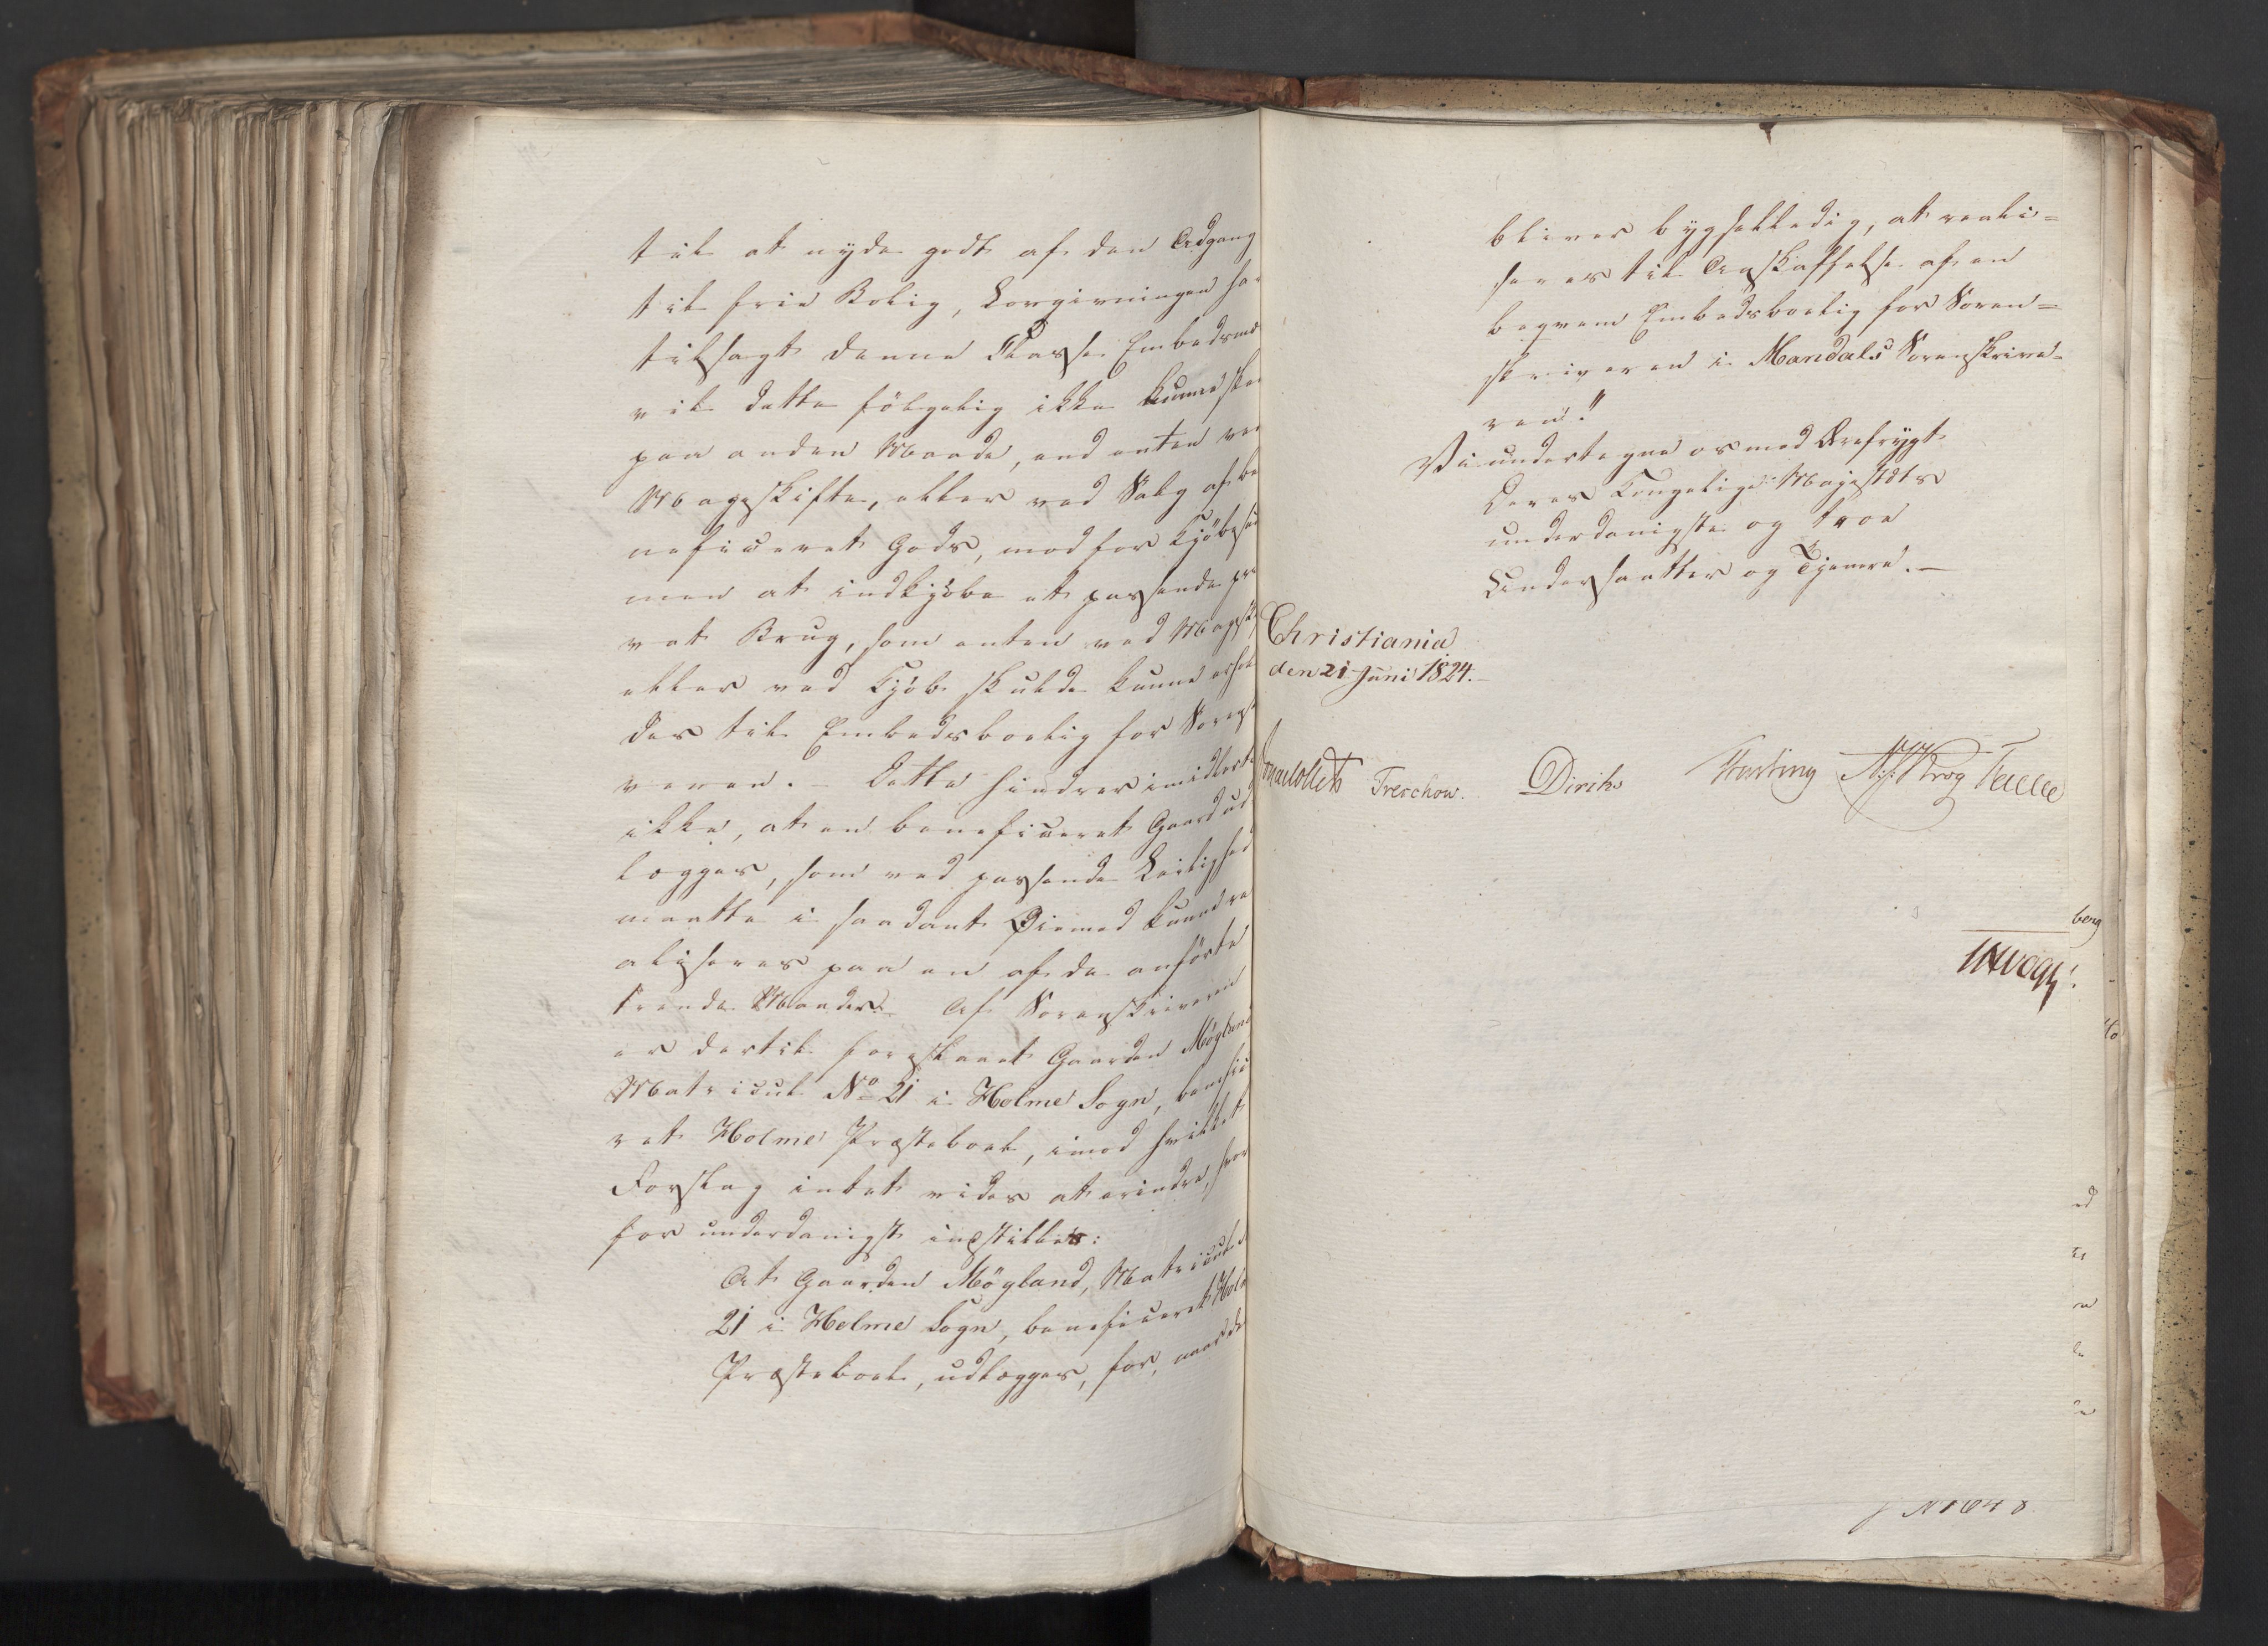 til at nyde godt af den Adgang
til frie Bolig, Lovgivningen ha
tilsagt denne Classe Embedsmæ
vil dette fölgelig ikke kunne skee
paa anden Maade, end enten ved
Mageskifte, eller ved Salg af be
neficeret Gods, mod for Kjöbesu
men at indkjöbe et passende pri
vat Brug, som enten ved Magesk
eller ved Kjöb skulde kunne erhol
des til Embedsboelig for Sorensk
veren. – Dette hindrer imidlerti
ikke, at en beneficeret Gaard ud
lægges, som ved passende Leilighed
maatte i saadant Øiemed kunne re
aliseres paa en af de anförte
trende Maader. Af Sorenskriveren
er dertil foreslaaet Gaarden Mögland
Matricul No 21 i Holme Sogn, benefice
ret Holme Præsteboel, imod hvilket
Forslag intet vides at erindre, hvor
for underdanigst indstilles:
At Gaarden Mögland, Matricul N
21 i Holme Sogn, beneficeret Holm
Præsteboel, udlægges, for, naar de
bliver bygselledig, at reali=
seres til Anskaffelse af en
beqvem Embedsboelig for Soren=
skriveren i Mandals Sorenskrive=
rie."
Vi undertegne os med Ærefrygt
Deres Kongelige Majestæts
underdanigste og troe
Undersaatter og Tjenere. –
Christiania
den 21 Juni 1824. –
Collett Treschow. Diriks Hertting Krog Fasting
berg
Vogt.
to
ed
er
J N 1648